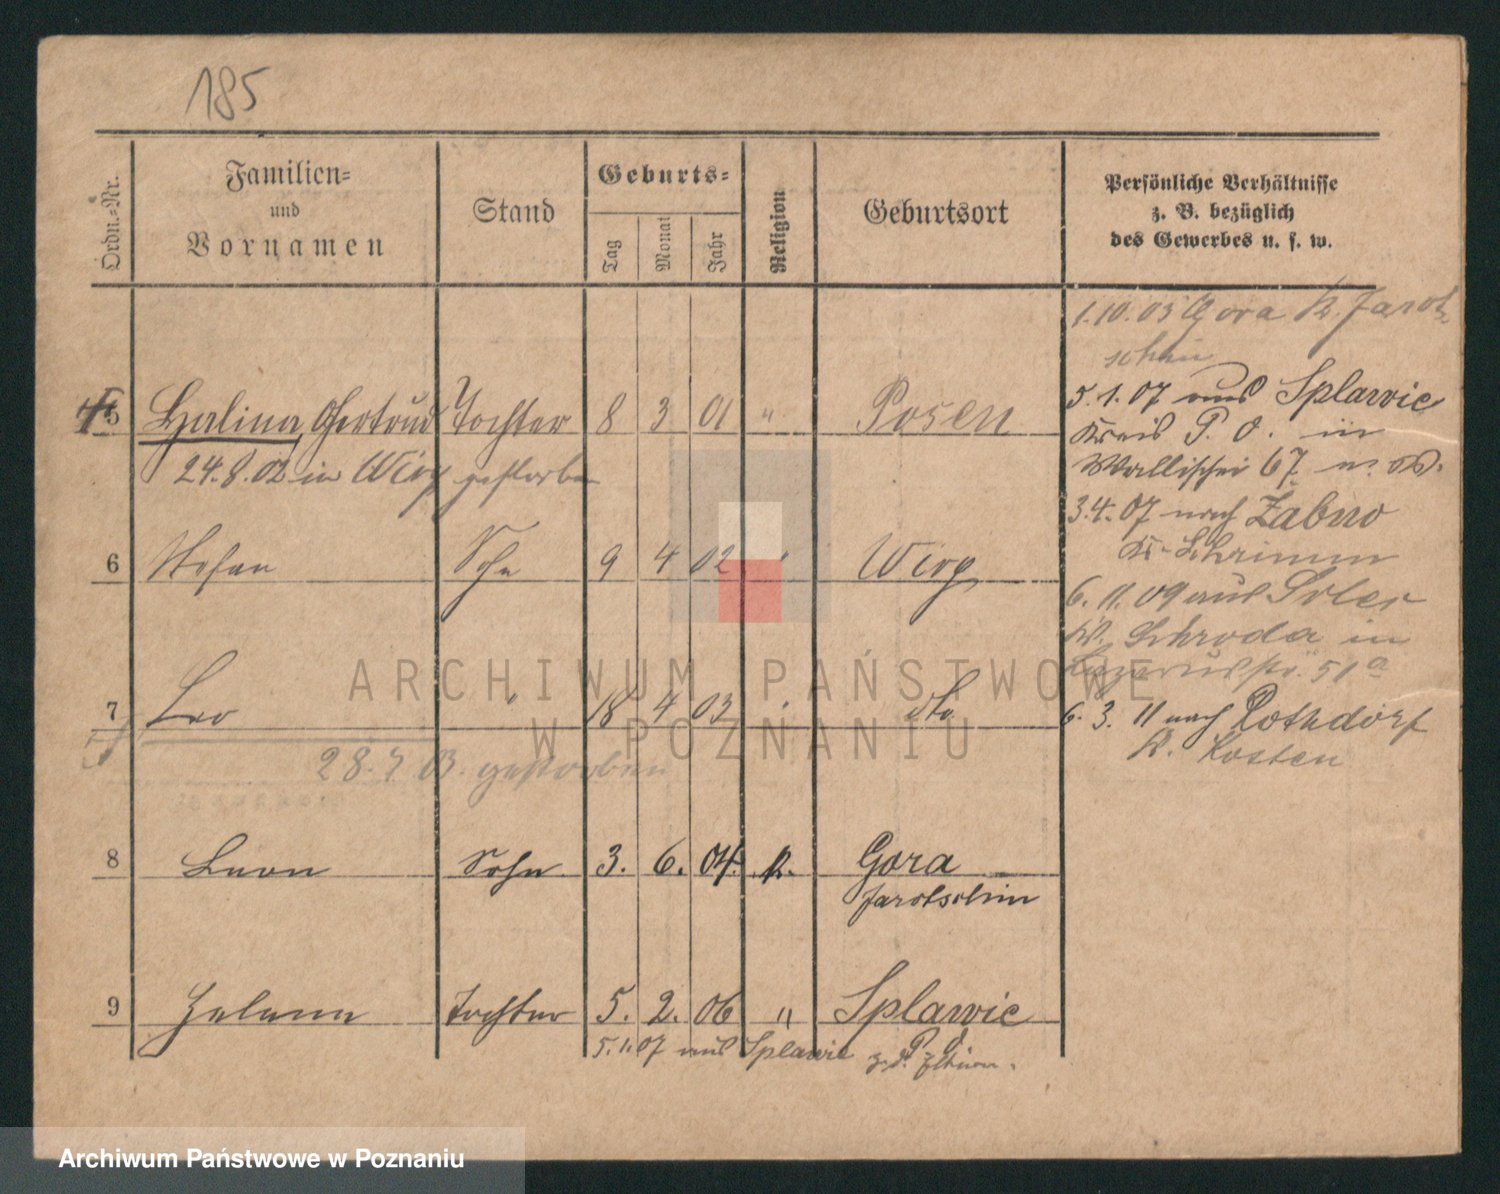 185
Ordn.=Nr.
Familien=
und
Vornamen
Stand
Geburts=
Tag
Monat
Jahr
Religion
Geburtsort
Persönliche Verhältnisse
z. B. bezüglich
des Gewerbes u. s. w.
1.10.03 Gora K. Jarot-
schin
5 Halina Gertrud Tochter 8 3 01 " Posen
24.8.02 in Wiry gestorben
5.1.07 aus Splawie
Kreis P. O. in
Wallischei 67
3.4.07 nach Zabno
Kr. Schrimm
6 Stefan Sohn 9 4 02 " Wiry
6.11.09 aus
Kr. Schroda in
51a
7 Leo " 18 4 03 " dto
28.7.03. gestorben
6.3.11 nach Rothdorf
K. Kosten
8 Leon Sohn 3. 6. 04. K. Gora
Jarotschin
9 Helena Tochter 5. 2. 06 " Splawie
P. O.
5.1.07 aus Splawie
ARCHIWUM PAŃSTWOWE
W POZNANIU
Archiwum Państwowe w Poznaniu